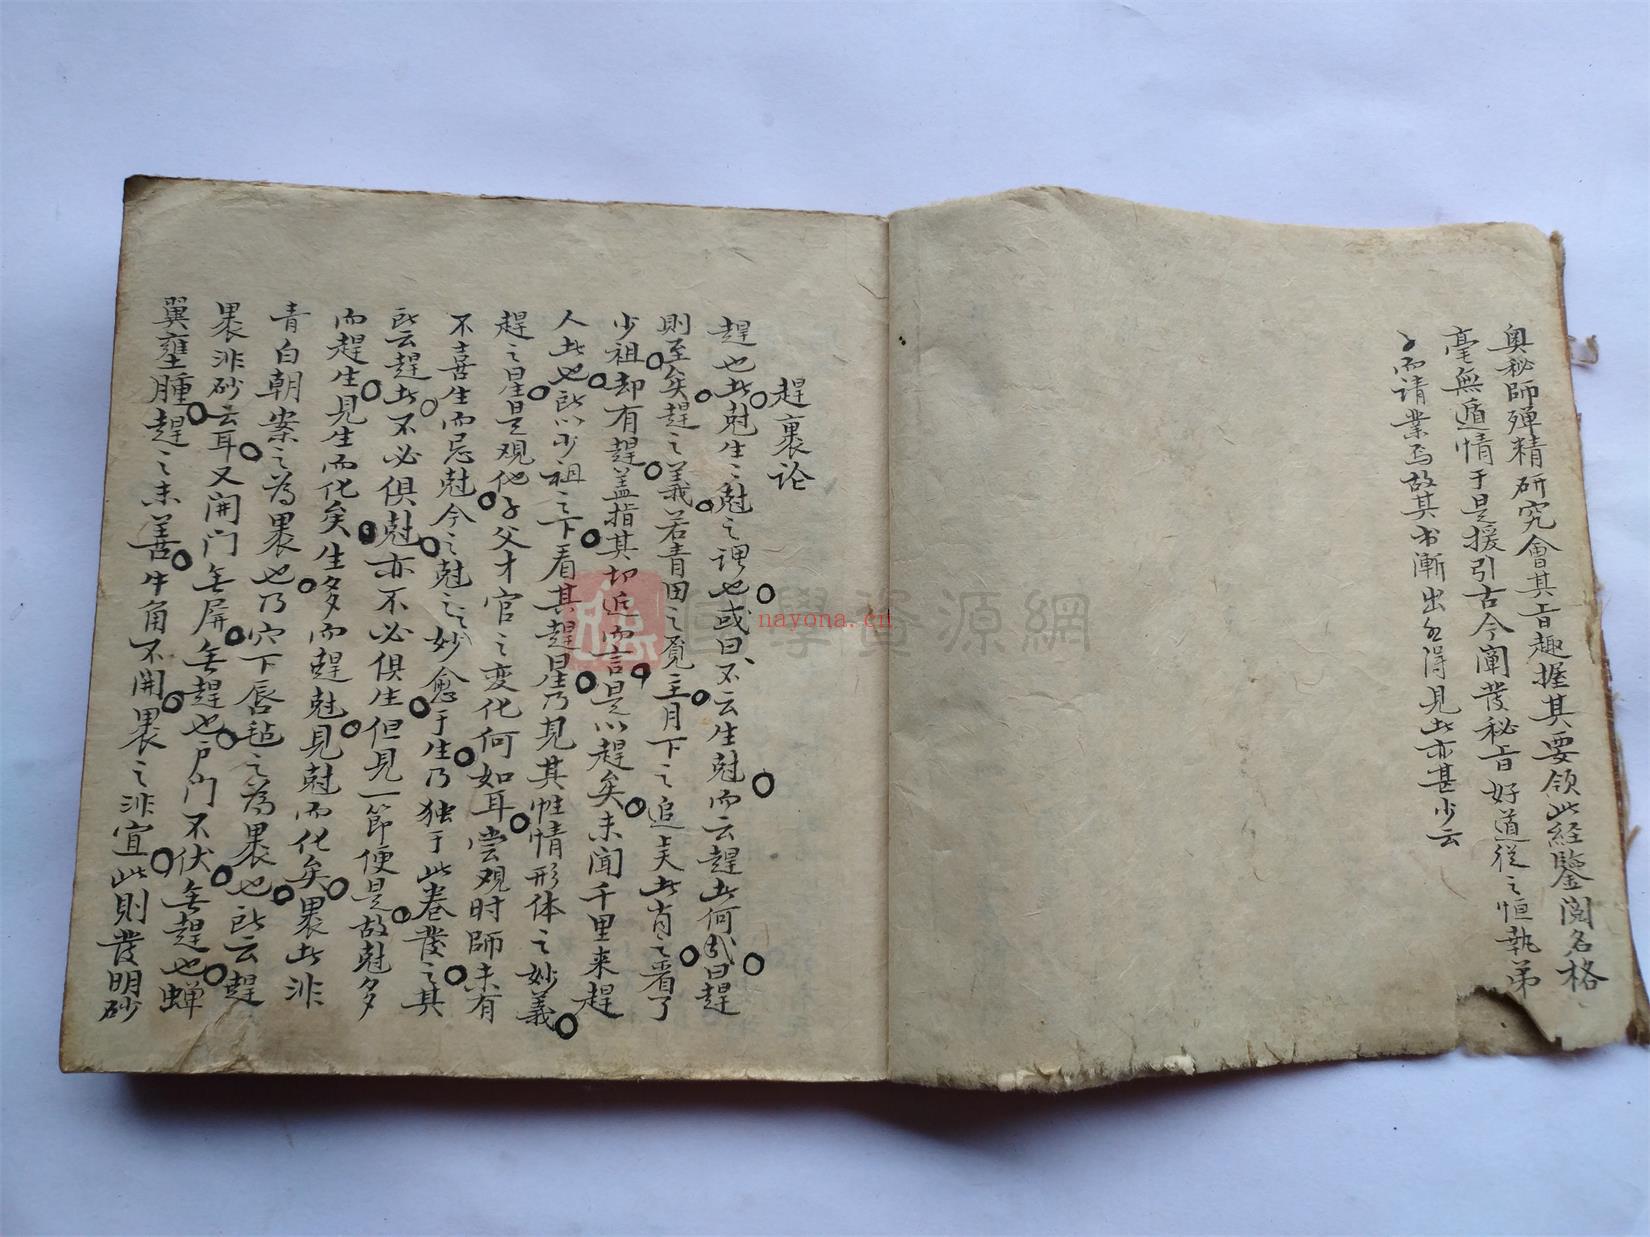 奥秘師殫精研究會其旨趣握其要領此經鑒阅名格
毫無遁情于是援引古今闡發秘旨好道從之恒執弟
子而请業焉故其书漸出而得見此亦甚少云
趕裹论
趕也者尅生之尅之谓也或曰不云生尅而云趕者何哉曰趕
則至矣趕之義若青田之覓主月下之追夫者肯之看了
少祖却有趕盖指其切近而言是以趕矣未聞千里来趕
人者也所以少祖之下看其趕星乃見其性情形体之妙義
趕之星是观他子父才官之変化何如耳尝观时師未有
不喜生而忌尅今之尅之妙愈于生乃独于此卷發之其
所云趕者不必俱尅亦不必俱生但見一節便是故尅多
而趕生見生而化矣生多而趕尅見尅而化矣裹者非
青白朝案之為裹也乃穴下唇毡之為裹也所云趕
裹非砂云耳又開门無屏無趕也戶门不伏無趕也蝉
翼壅腫趕之未善牛角不開裹之非宜此則發明砂
國學資源網
nayona.cn